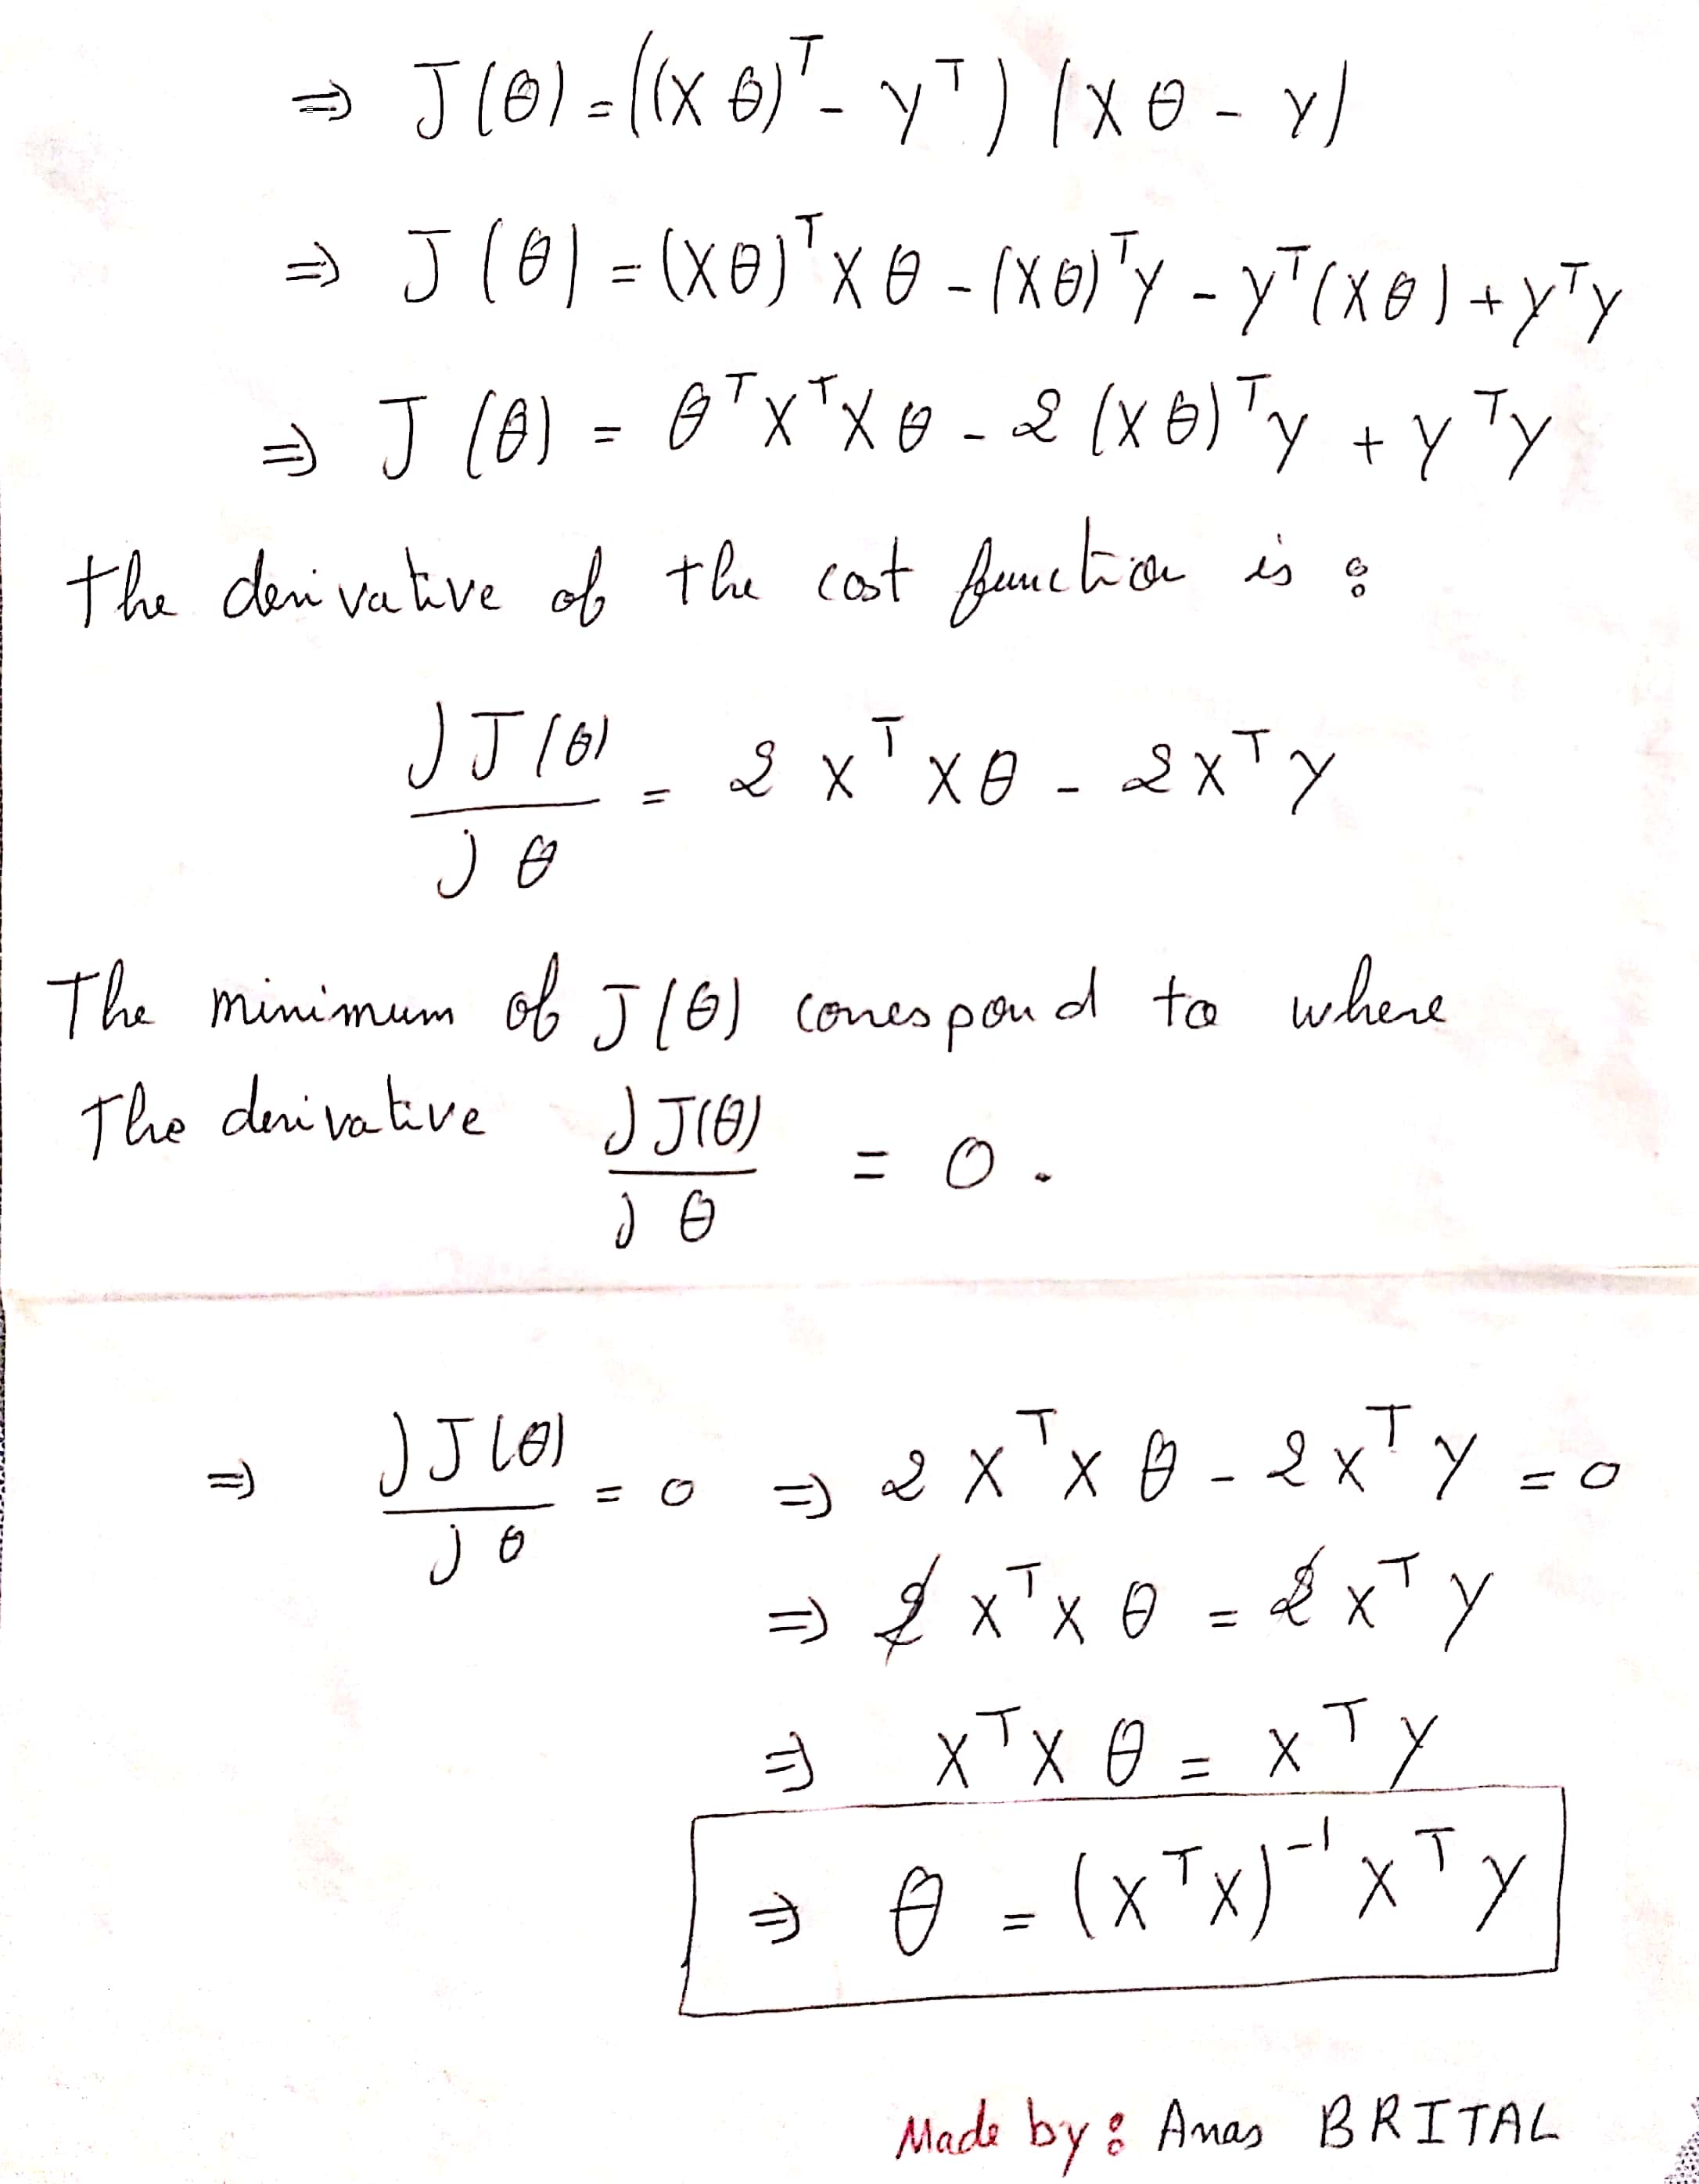 ⇒ J(θ) = ((Xθ)ᵀ - yᵀ) (Xθ - y)
⇒ J(θ) = (Xθ)ᵀXθ - (Xθ)ᵀy - yᵀ(Xθ) + yᵀy
⇒ J(θ) = θᵀXᵀXθ - 2(Xθ)ᵀy + yᵀy
the derivative of the cost function is :
∂J(θ)/∂θ = 2XᵀXθ - 2Xᵀy
The minimum of J(θ) correspond to where
The derivative ∂J(θ)/∂θ = 0.
⇒ ∂J(θ)/∂θ = 0 ⇒ 2XᵀXθ - 2Xᵀy = 0
⇒ 2XᵀXθ = 2Xᵀy
⇒ XᵀXθ = Xᵀy
⇒ θ = (XᵀX)⁻¹Xᵀy
Made by : Anas BRITAL